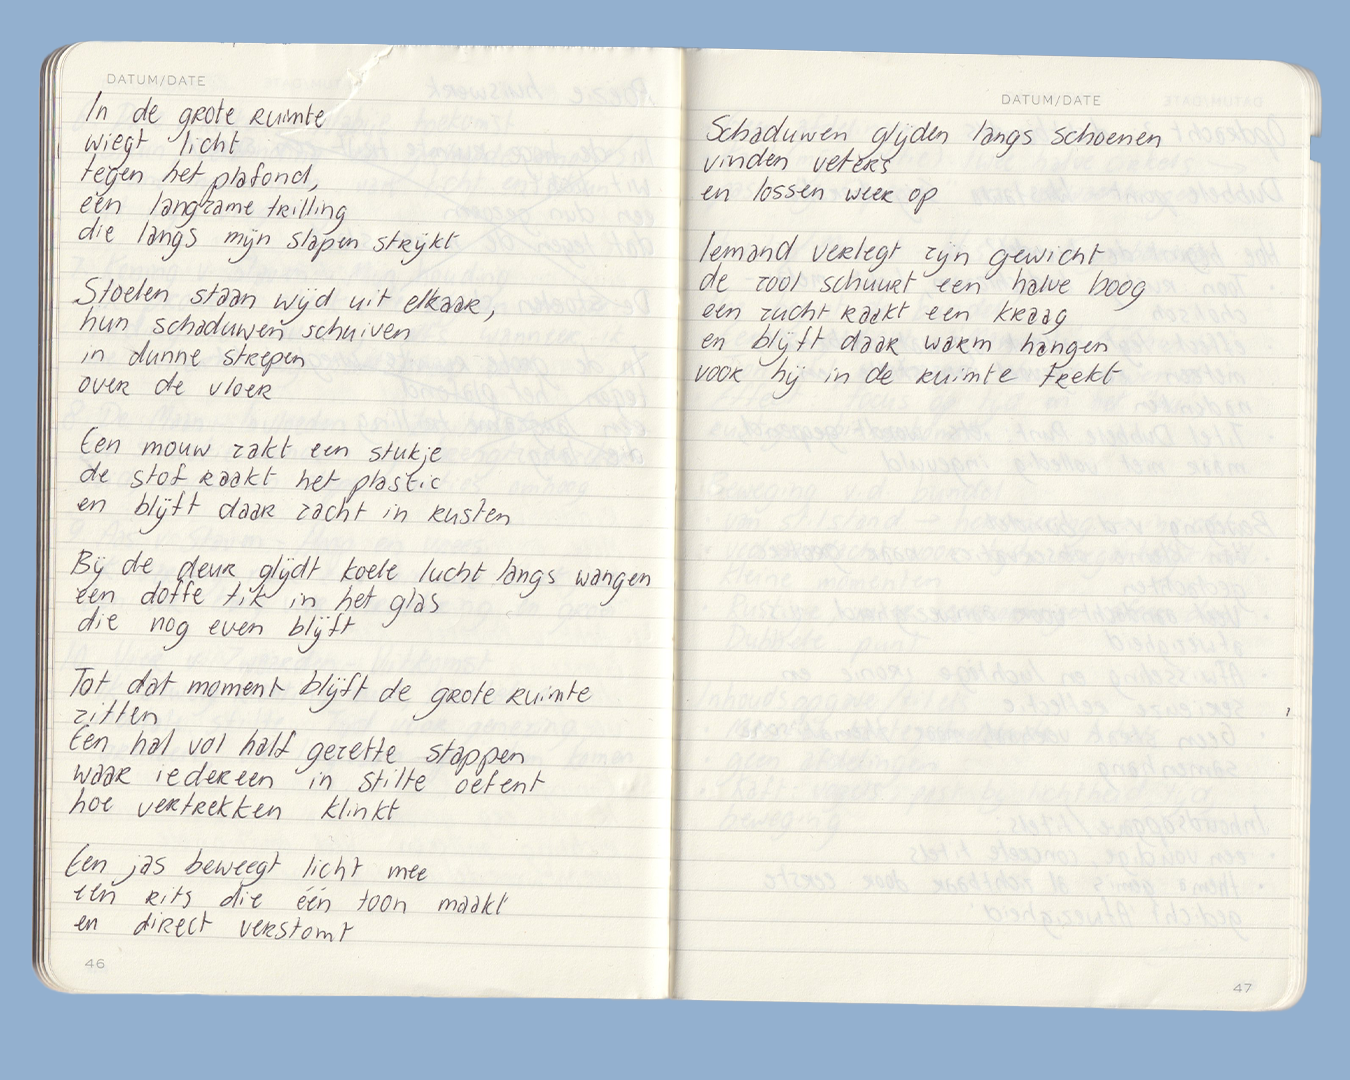 DATUM/DATE
In de grote ruimte
wiegt licht
tegen het plafond,
een langzame trilling
die langs mijn slapen strijkt
Stoelen staan wijd uit elkaar,
hun schaduwen schuiven
in dunne strepen
over de vloer
Een mouw zakt een stukje
de stof raakt het plastic
en blijft daar zacht in rusten
Bij de deur glijdt koele lucht langs wangen
een doffe tik in het glas
die nog even blijft
Tot dat moment blijft de grote ruimte
zitten
Een hal vol half gezette stappen
waar iedereen in stilte oefent
hoe vertrekken klinkt
Een jas beweegt licht mee
een rits die één toon maakt
en direct verstomt
46
DATUM/DATE
Schaduwen glijden langs schoenen
vinden veters
en lossen week op
Iemand verlegt zijn gewicht
de zool schuurt een halve boog
een zucht raakt een kraag
en blijft daar warm hangen
voor hij in de ruimte trekt
47